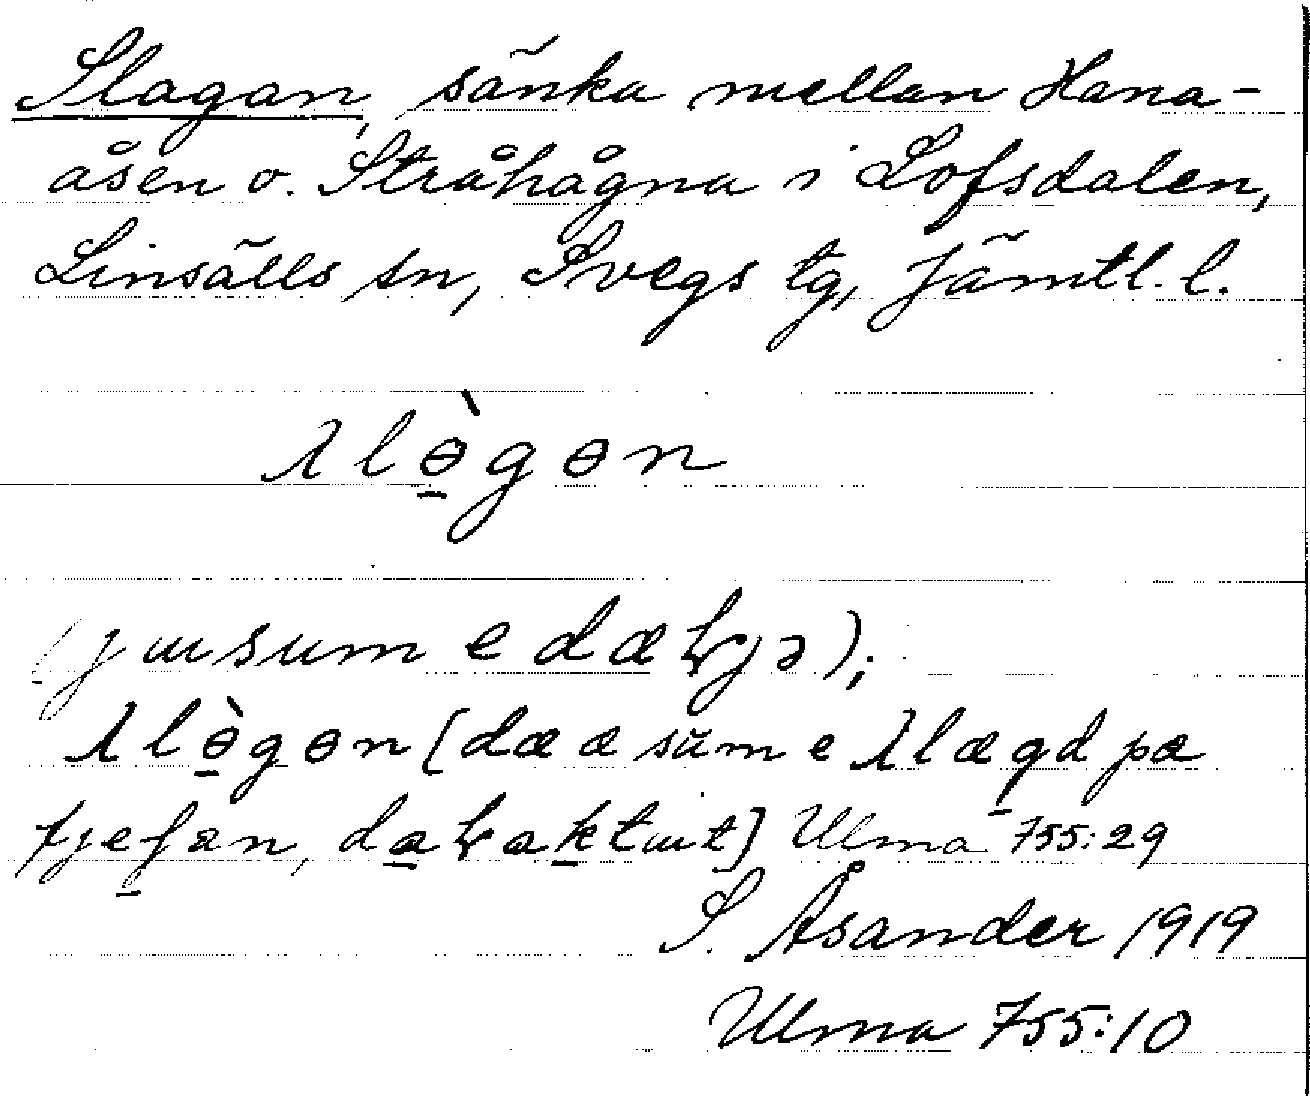 Slagan, sänka mellan Hana-
åsen o. Stråhågna i Lofsdalen,
Linsälls sn, Svegs tg, Jämtl. l.
λlɵ̲̀gɵn
(jɯsum e dæƪjə);
λlɵ̲̀gɵn [dæ æ sŭm e λlægd pæ
Ulma 755:29
S. Åsander 1919
Ulma 755:10